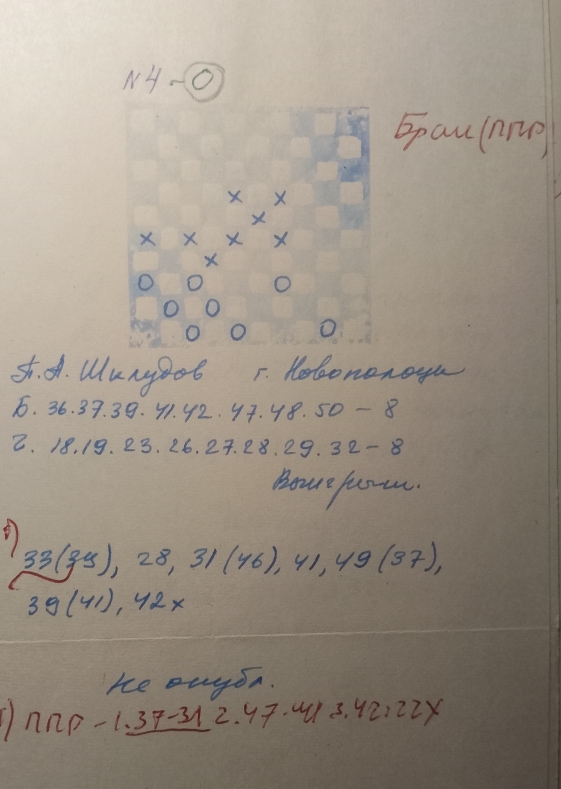 N4 - O
Брак (ППР)
П. А. Шклудов г. Новополоцк
Б. 36.37.39.41.42.47.48.50 - 8
Ч. 18.19.23.26.27.28.29.32 - 8
Выигрыш.
33(39), 28, 31(46), 41, 49(37),
39(41), 42x
Не опубл.
ППР - 1.37-31 2.47-41 3.42:22X